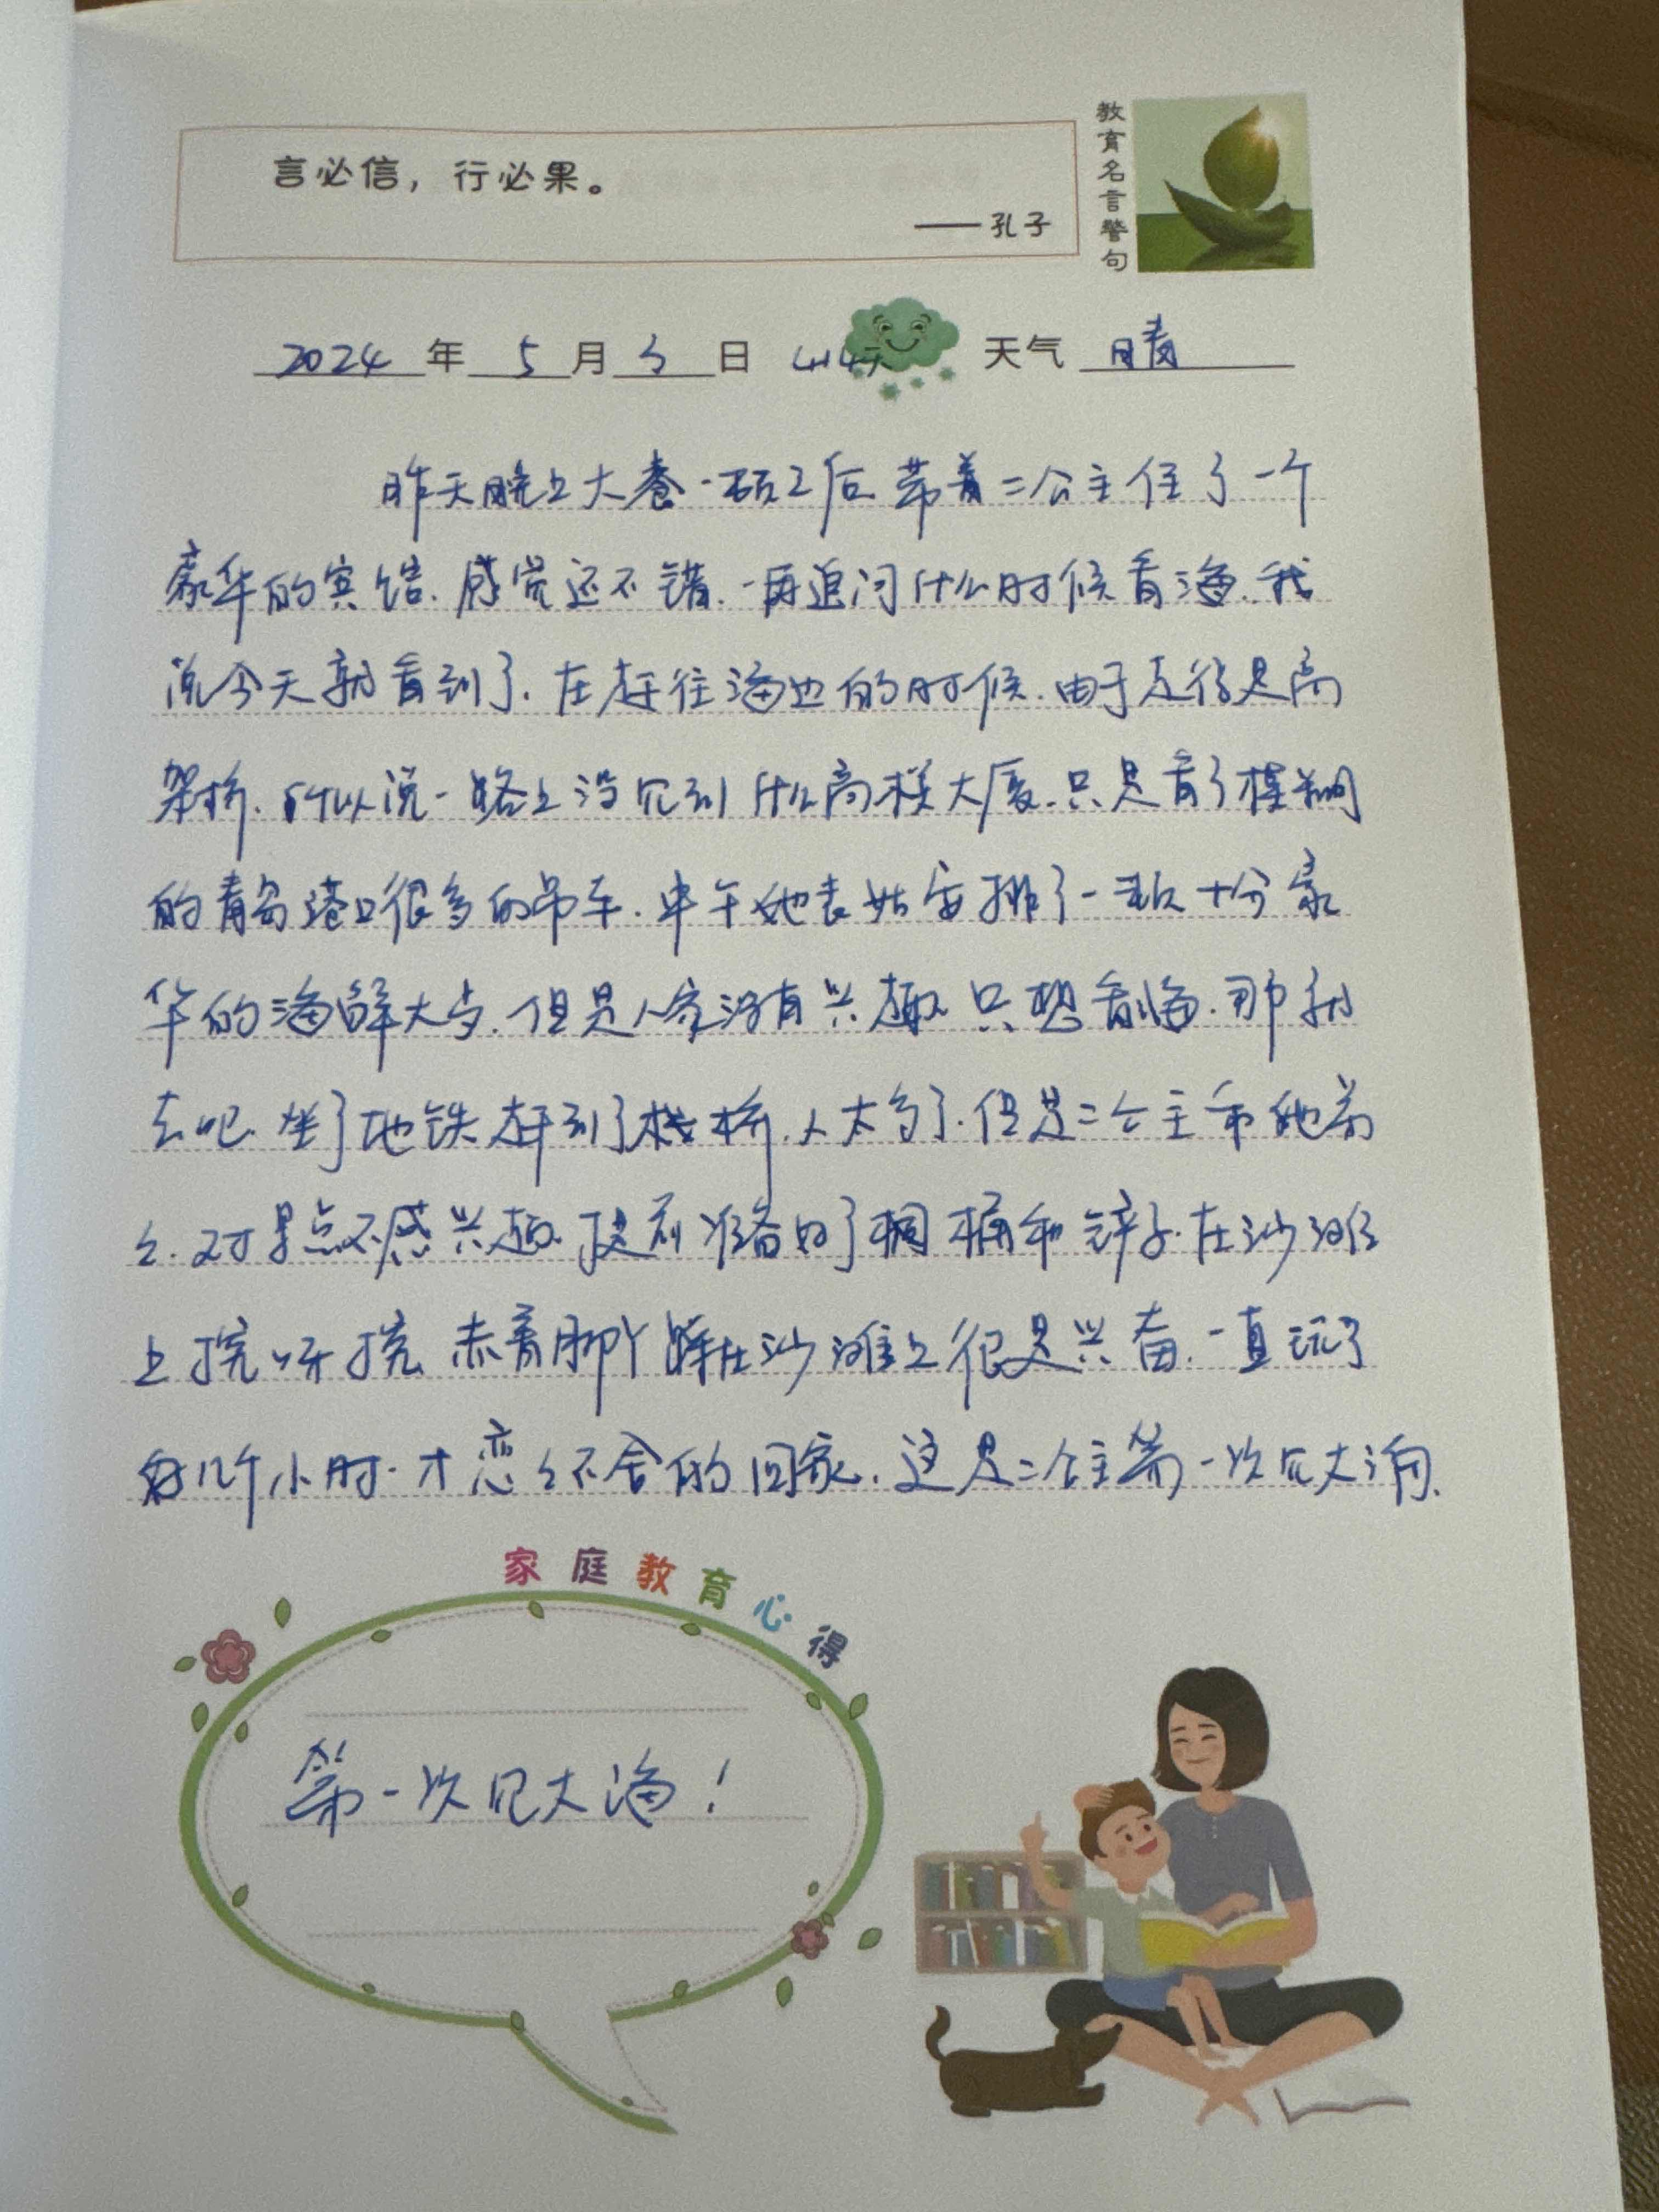 言必信，行必果。
——孔子
教育名言警句
2024年5月3日 414天 天气 晴
昨天晚上大卷一顿之后带着二公主住了一个
豪华的宾馆.感觉还不错.一再追问什么时候看海.我
说今天就看到了.在赶往海边的时候.由于走得是高
架桥.所以说一路上没见到什么高楼大厦.只是看了模糊
的青岛港口很多的吊车.中午她表姑安排了一顿十分豪
华的海鲜大占.但是人家没有兴趣只想看海.那就
去吧.坐了地铁赶到了栈桥.人太多了.但是二公主和她弟
弟.对景点不感兴趣.提前准备好了桶桶和铲子.在沙滩
上挖呀挖 赤着脚丫踩在沙滩上很是兴奋.一直玩了
好几个小时.才恋恋不舍的回家.这是二公主第一次见大海.
家庭教育心得
第一次见大海！